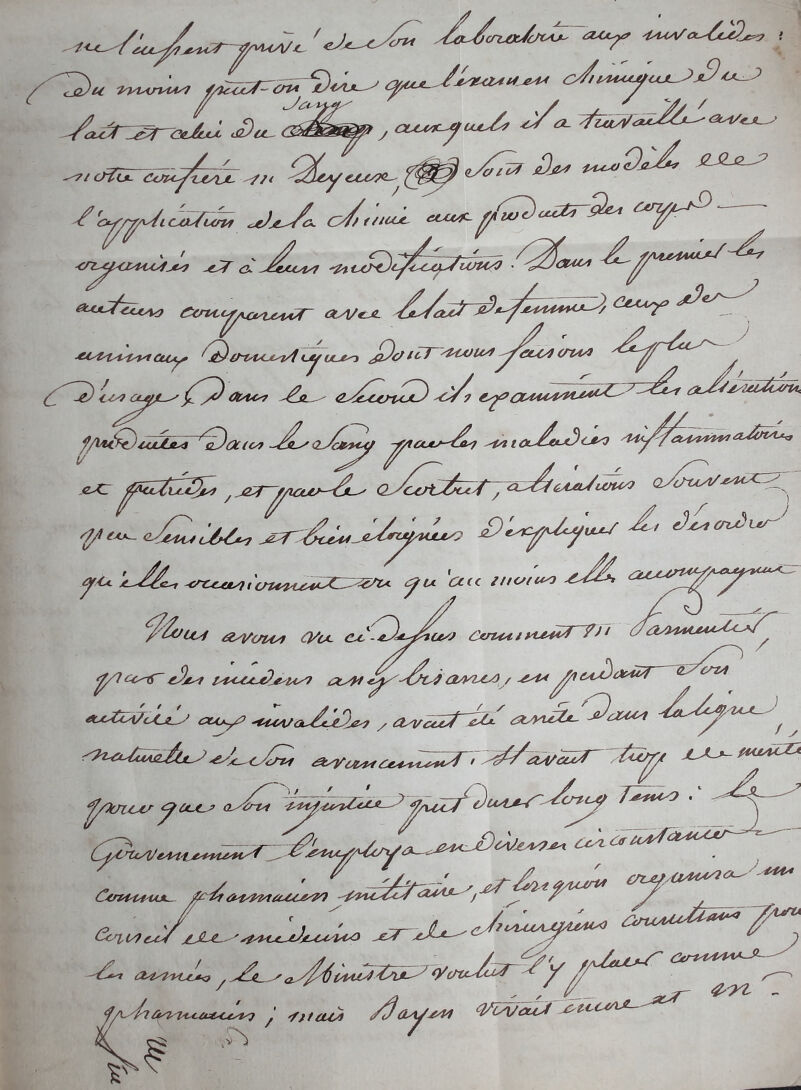 ne l'eussent privé de son laboratoire aux invalides :
du moins peut-on dire que l'éxamen chimique du
lait et celui du sang, auxquels il a travaillé avec
notre confrére m Deyeux, sont des modèles de
l'application de la chimie aux produits des corps
organisés et à leurs modifications. Dans le premier les
auteurs comparent avec le lait de femme, ceux des
animaux domestiques dont nous faisons le plus
d'usage, dans le second ils examinent les altérations
produites dans le sang par les maladies inflammatoires
et putrides, et par le scorbut, altérations souvent
peu sensibles et bien éloignées d'expliquer les désordres
qu'elles occasionnent ou qu'au moins elles accompagnent
Nous avons vu ci-dessus comment m Parmentier,
par des incidens assez bisarres, en perdant son
activité aux invalides, avait été arrêté dans la ligne
naturelle de son avancement. Il avait trop de mérite
pour que son injustice put durer long tems : le
Gouvernement l'employa en diverses circonstances
comme pharmacien militaire, et lorsqu'on organisa un
conseil de médecins et de chirurgiens consultans pour
les armées, le Ministre voulut l'y placer comme
pharmacien ; mais Bayen vivait encore et m